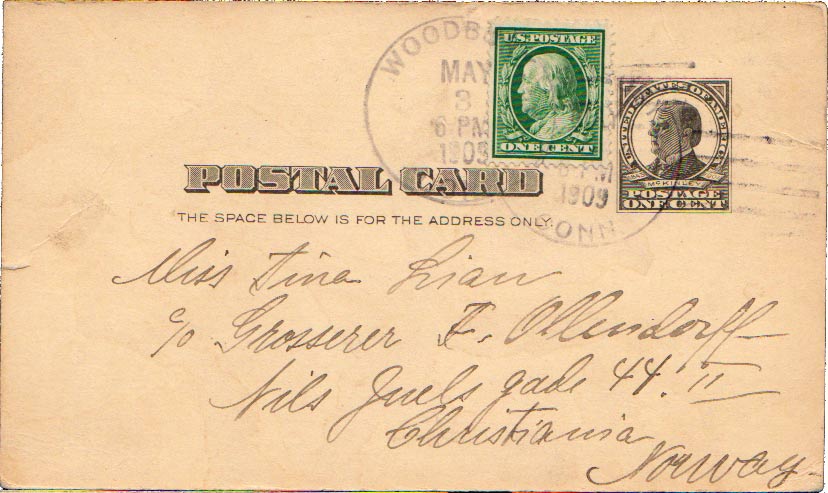 WOODB
MAY
3
6 PM
1909
U.S. POSTAGE
ONE CENT
UNITED STATES OF AMERICA
McKINLEY
POSTAGE
ONE CENT
PM
1909
CONN
POSTAL CARD
THE SPACE BELOW IS FOR THE ADDRESS ONLY.
Miss Tina Lian
c/o Grosserer F. Ollendorff
Nils Juels gade 44. II
Christiania
Norway